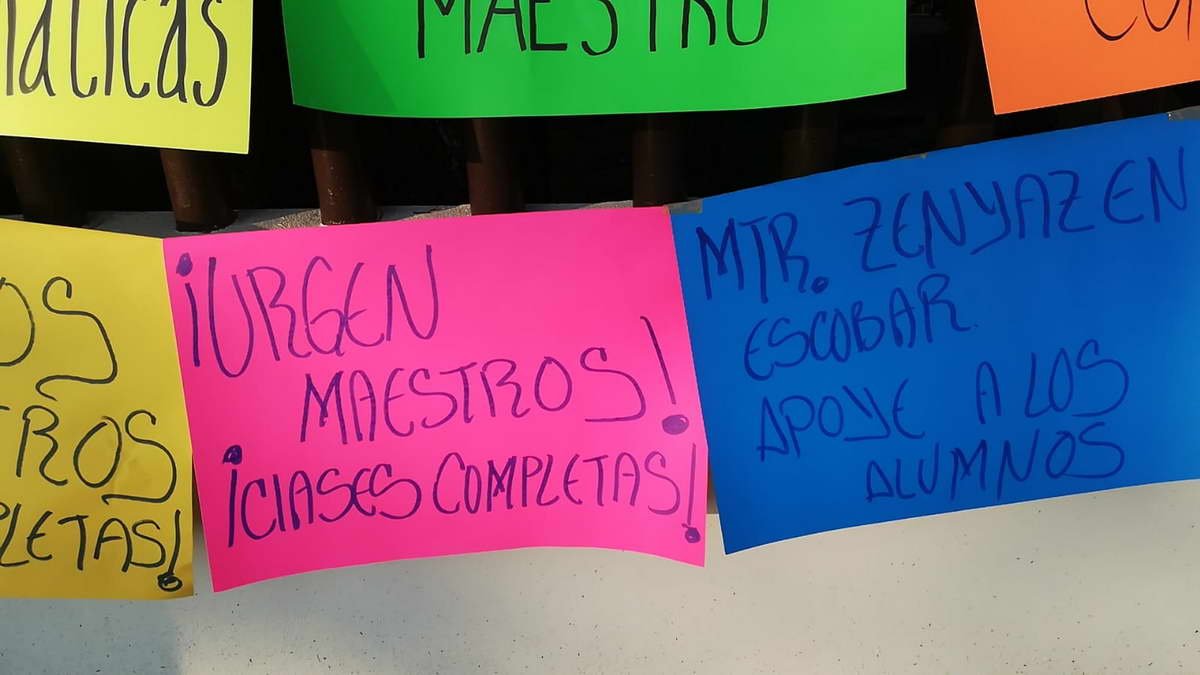 máticas
MAESTRO
COM
OS
TROS
PLETAS!
¡URGEN
MAESTROS!
¡CLASES COMPLETAS!
MTR. ZENYAZEN
ESCOBAR
APOYE A LOS
ALUMNOS